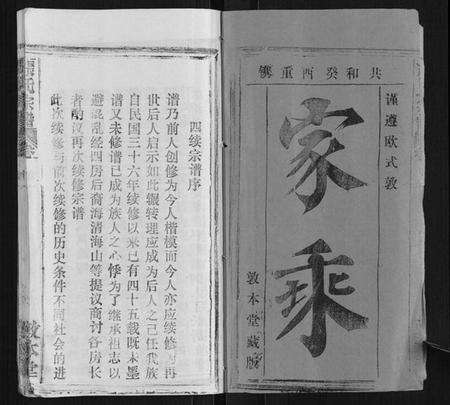 共和癸酉重镌
谨遵欧式敦
家乘
敦本堂藏版
四续宗谱序
谱乃前人创修为今人楷模而今人亦应续修 再
世后人启示如此辗转理应成为后人之己任我族
自民国三十六年续修以来已有四十五载既未墨
谱又未修谱已成为族人之心悸为了继承祖志以
避混乱经四房后裔海清海山等提议商讨各房长
者酌议再次续修宗谱
此次续修与前次续修的历史条件不同社会的进
氏宗谱
敦本堂